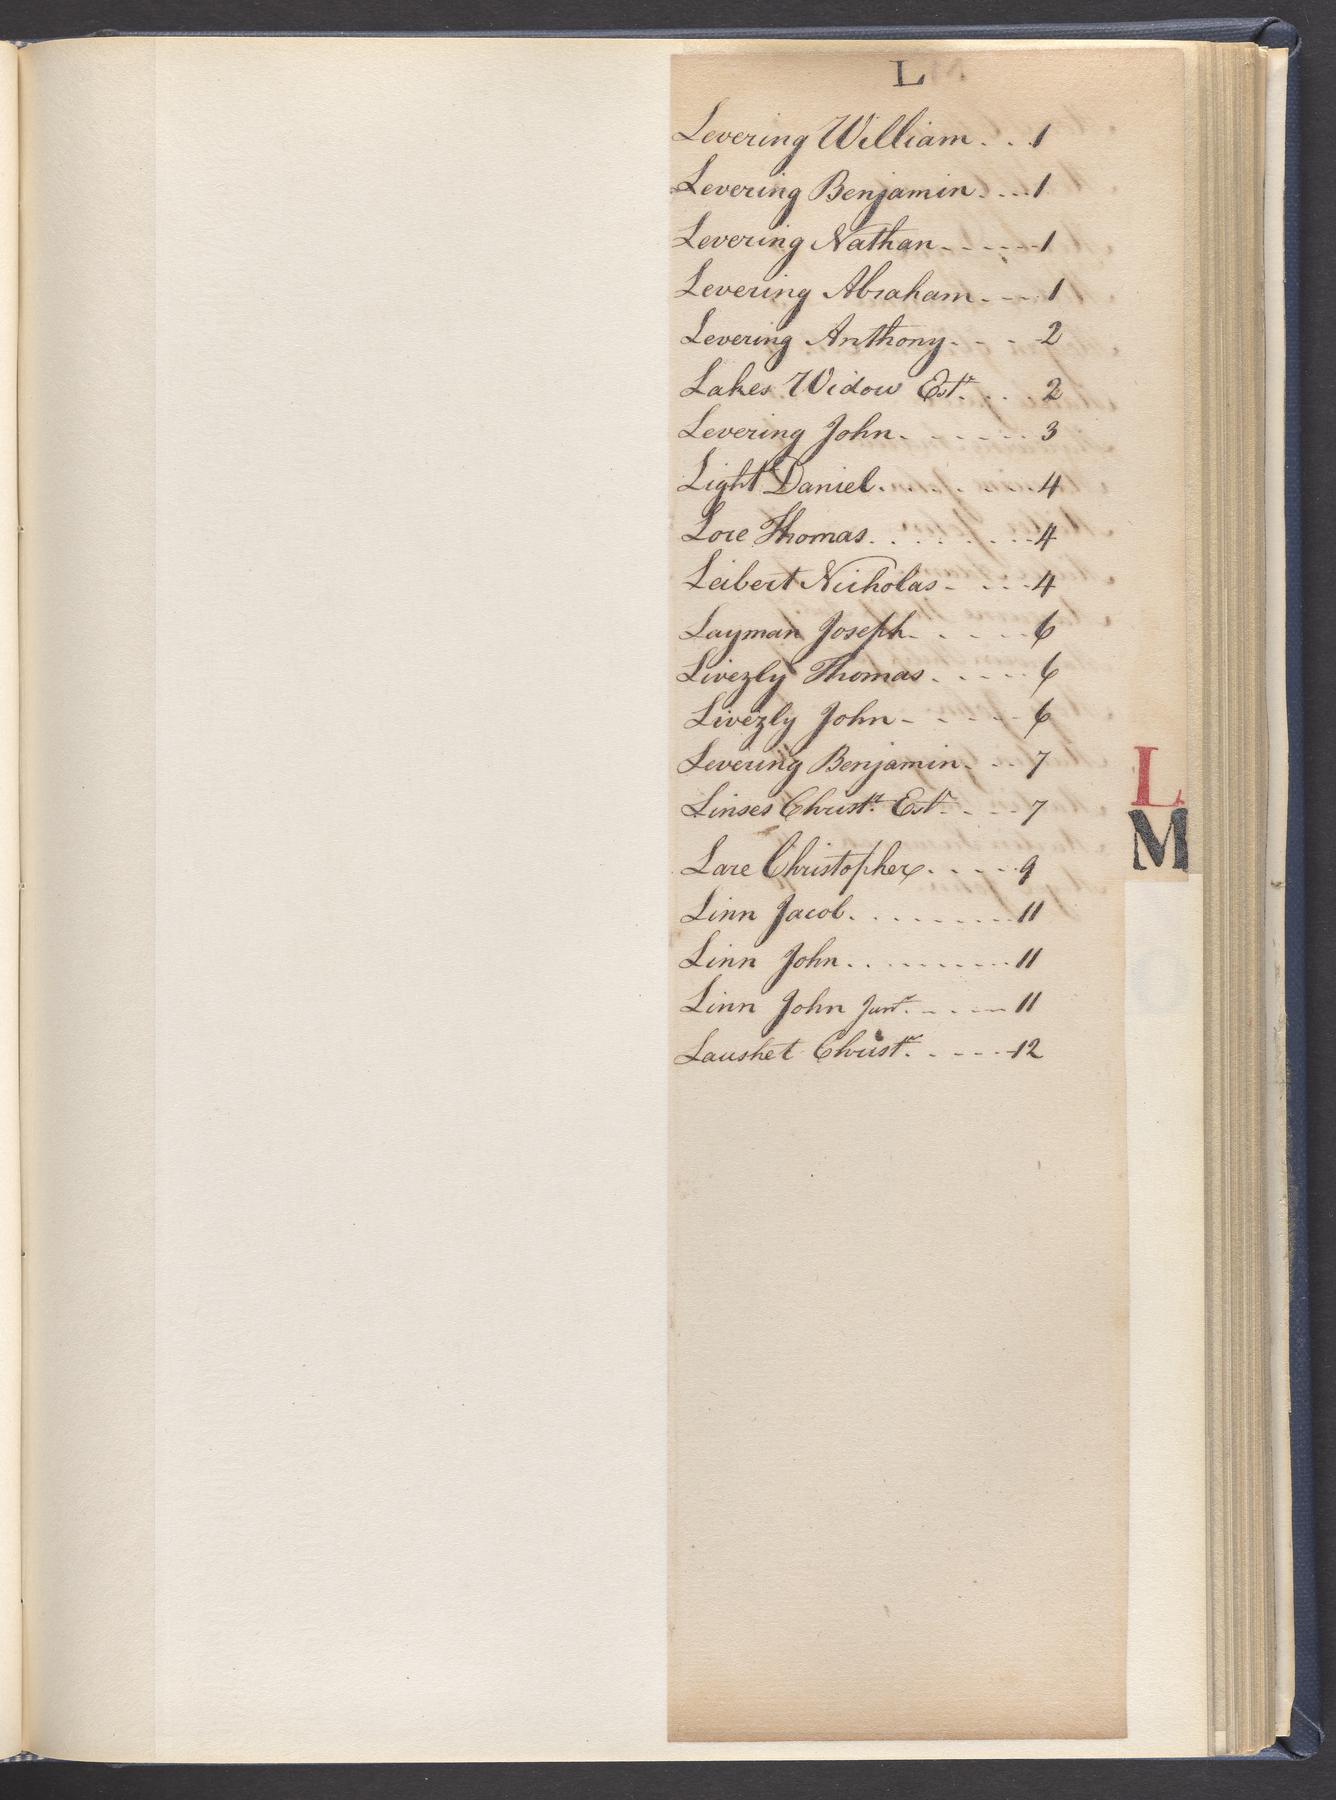 L
Levering William . . . 1
Levering Benjamin . . . . 1
Levering Nathan - - - - - 1
Levering Abraham - - - 1
Levering Anthony - - - 2
Lakes Widow Estr. . . . 2
Levering John - - - - - - 3
Light Daniel . . . . . . 4
Lore Thomas . . . . . . . . 4
Leibert Nicholas - - - - 4
Layman Joseph - - - - - 6
Livezly Thomas - - - - - 6
Livezly John - - - - - 6
Levering Benjamin - - - 7
Linses Christr. Estr - - - - 7
Lare Christopher - - - - - 9
Linn Jacob . . . . . . . . . 11
Linn John . . . . . . . . . 11
Linn John Junr. - - - - 11
Laushet Christr. - - - - - 12
L
M